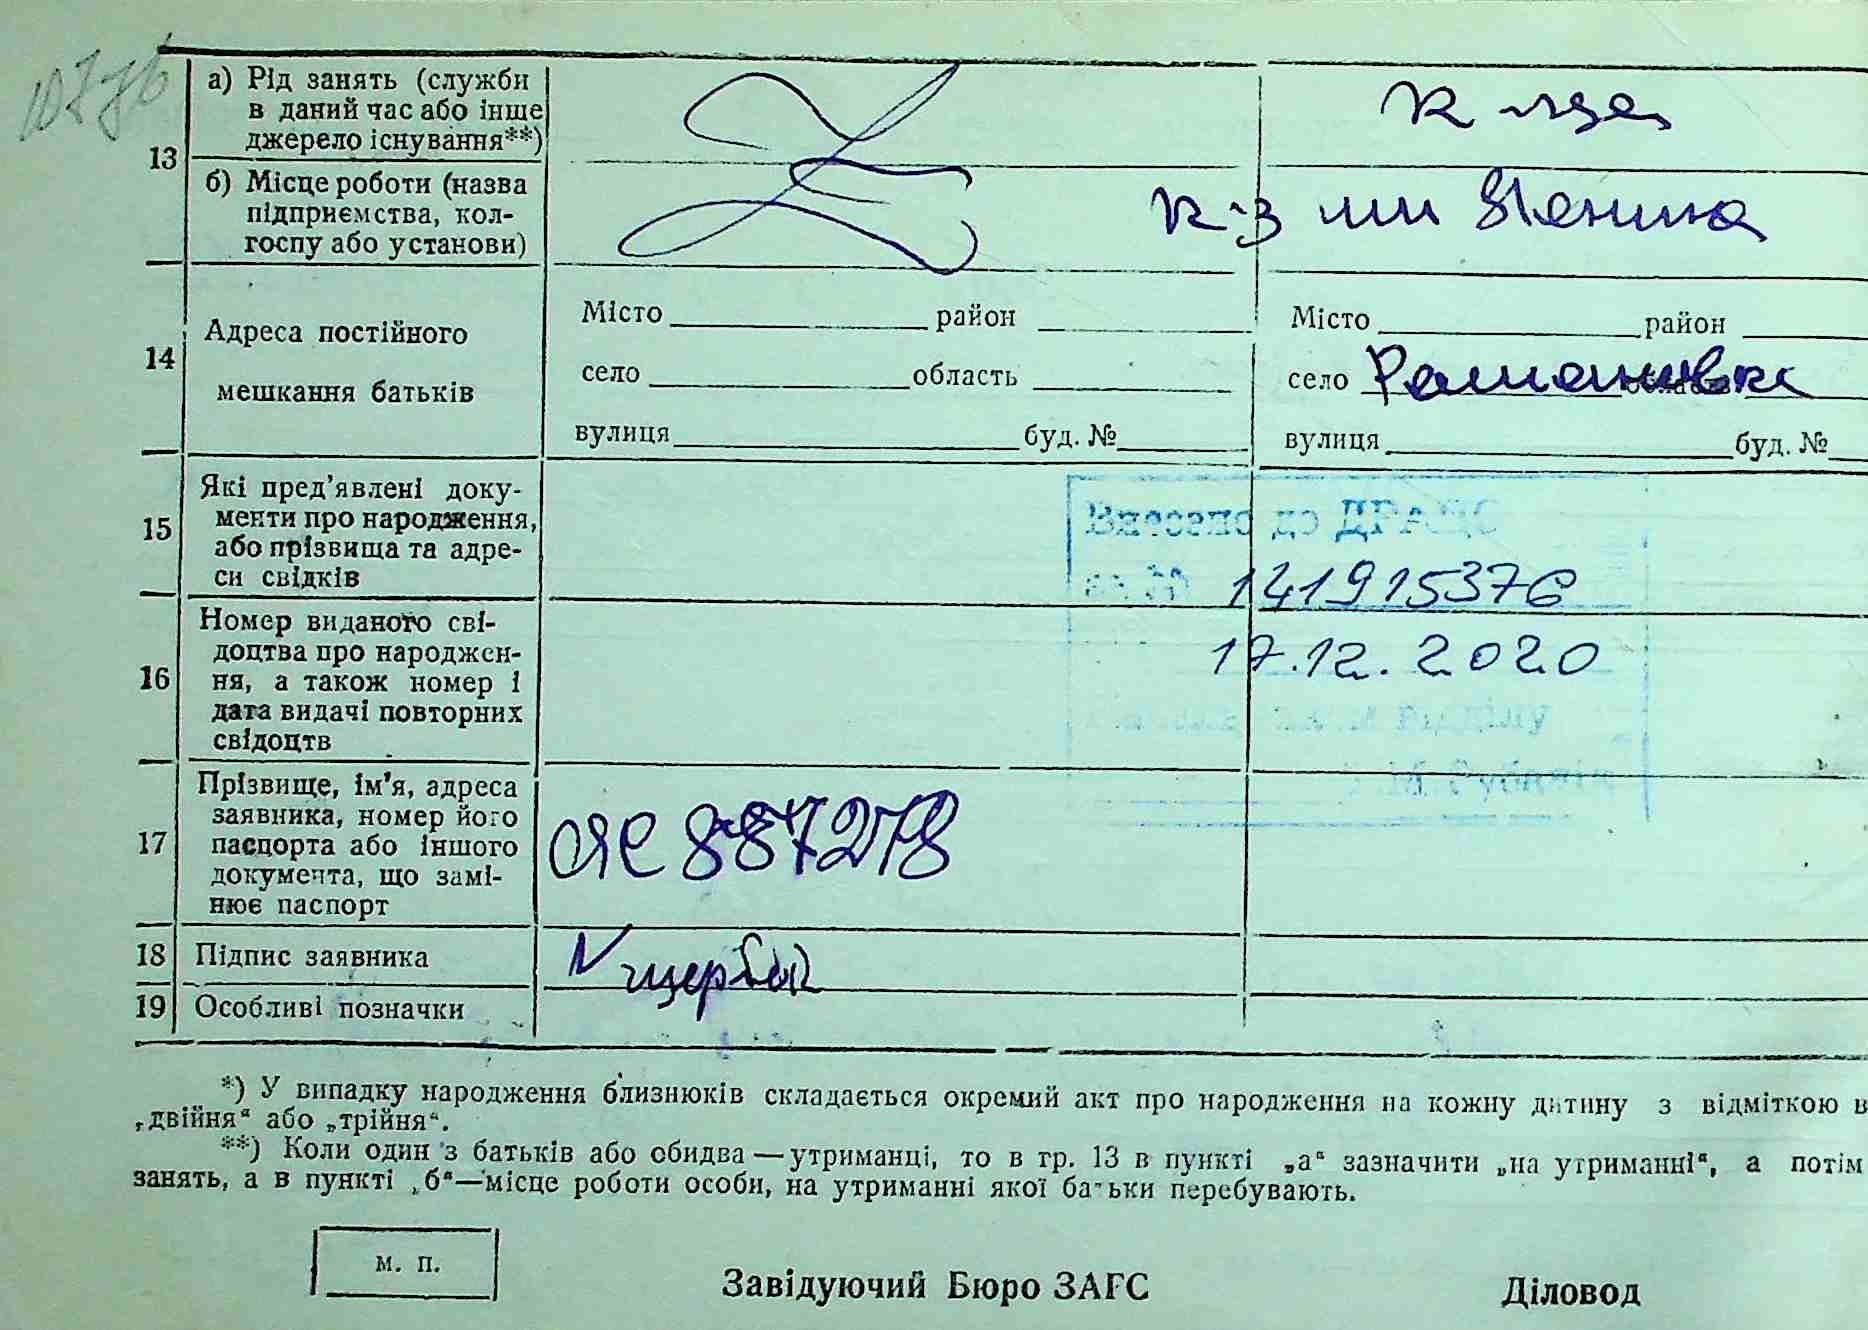 13
а) Рід занять (служби
в даний час або інше
джерело існування**)
к-ця
б) Місце роботи (назва
підприємства, кол-
госпу або установи)
к-з им Ленина
14
Адреса постійного
мешкання батьків
Місто район
село область
вулиця буд. №
Місто район
село Романивка
вулиця буд. №
15
Які пред’явлені доку-
менти про народження,
або прізвища та адре-
си свідків
Внесено до ДРАЦС
за № 141915376
17.12.2020
відділу
16
Номер виданого сві-
доцтва про народжен-
ня, а також номер і
дата видачі повторних
свідоцтв
17
Прізвище, ім’я, адреса
заявника, номер його
паспорта або іншого
документа, що замі-
нює паспорт
887278
18
Підпис заявника
V щербак
19
Особливі позначки
*) У випадку народження близнюків складається окремий акт про народження на кожну дитину з відміткою в
„двійня“ або „трійня“.
**) Коли один з батьків або обидва — утриманці, то в гр. 13 в пункті „а“ зазначити „на утриманні“, а потім
занять, а в пункті „б“—місце роботи особи, на утриманні якої батьки перебувають.
м. п.
Завідуючий Бюро ЗАГС
Діловод